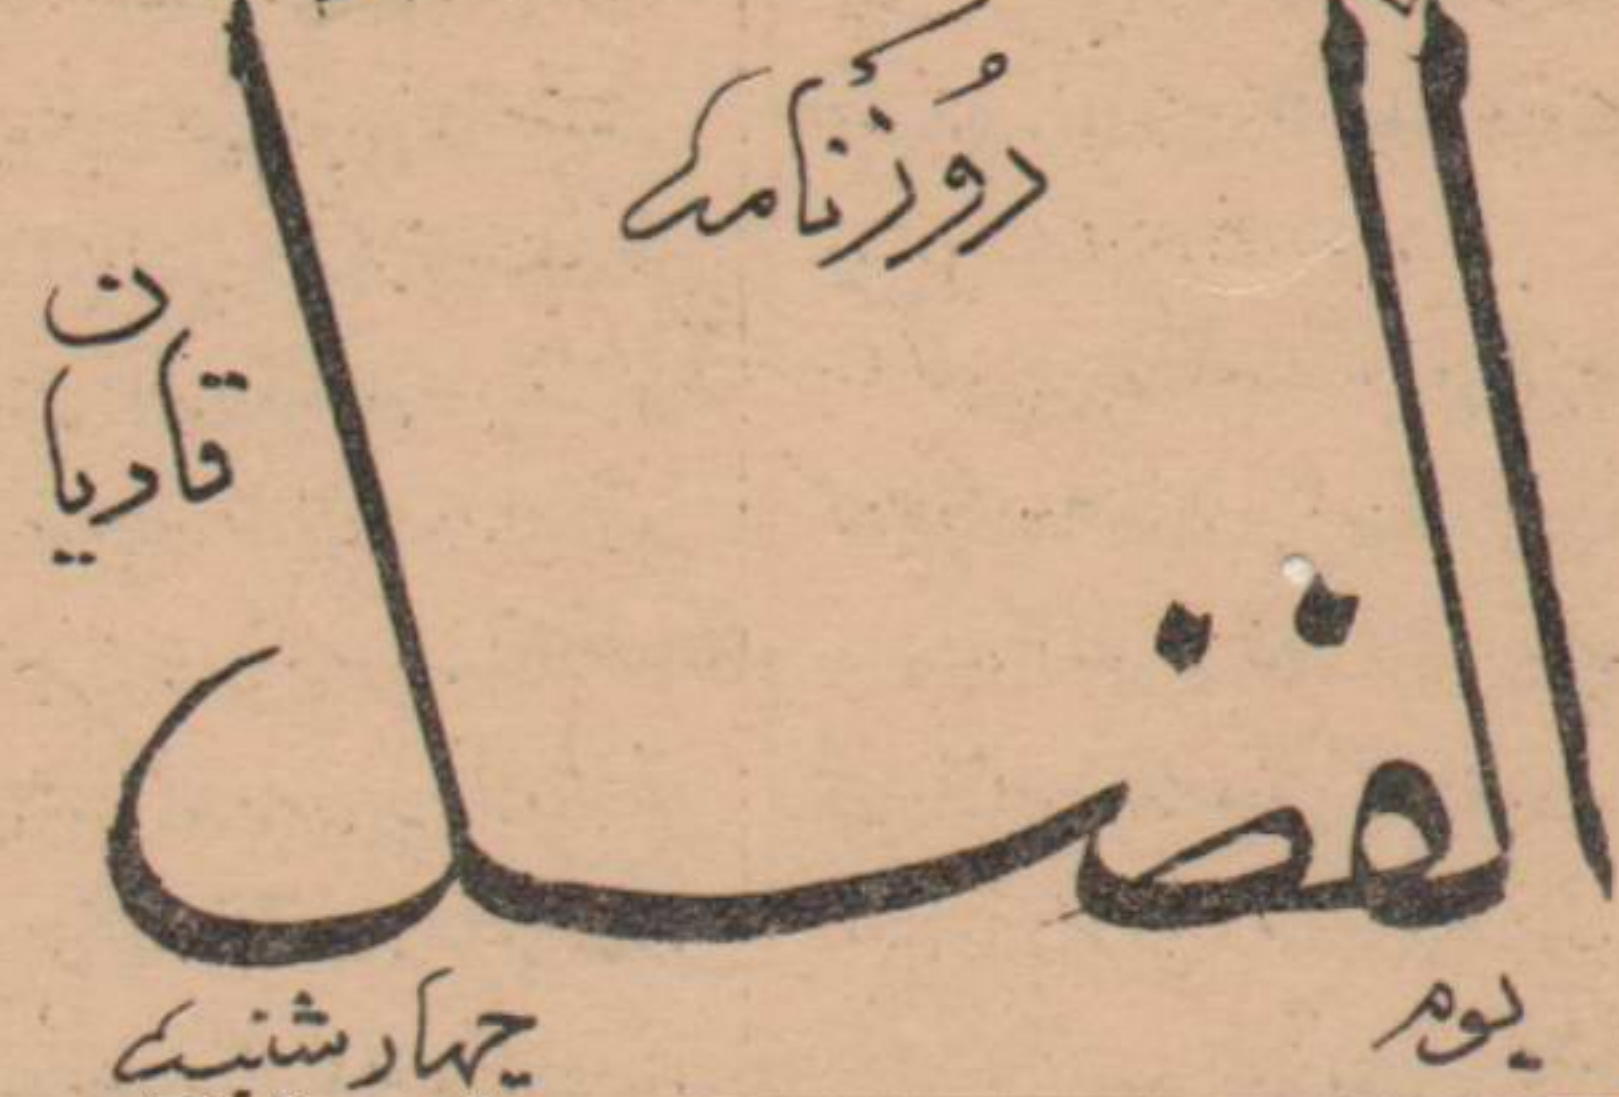 روزنامہ
الفضل
قادیان
یوم
چہار شنبہ